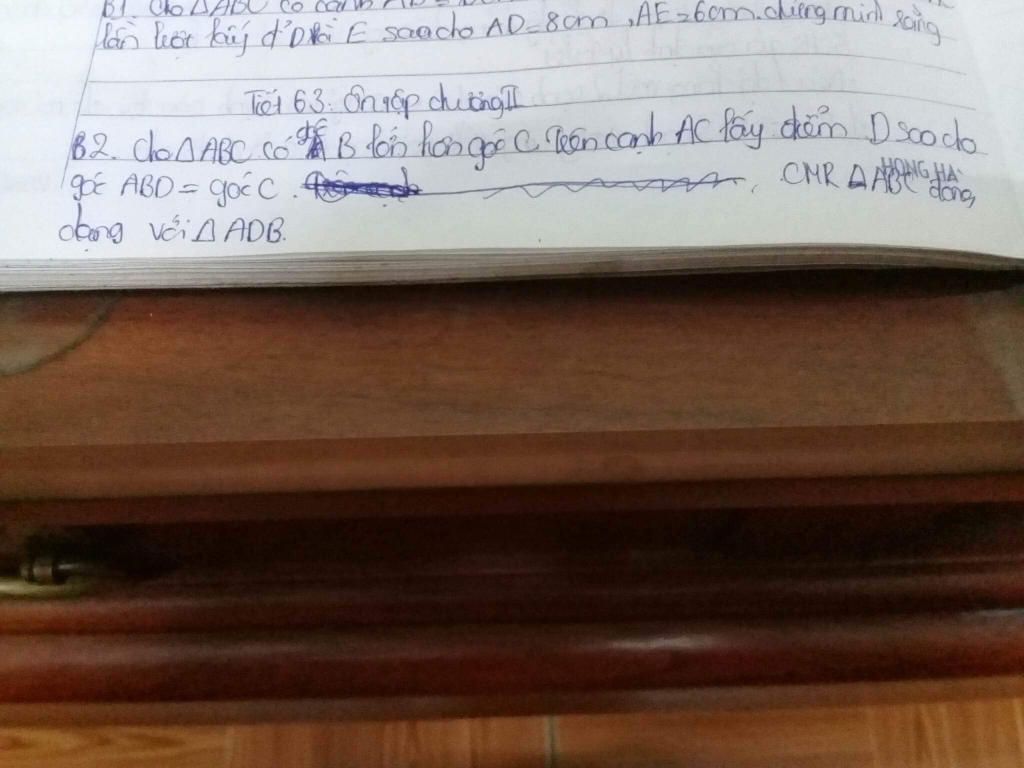 B1 Cho △ABC có cạnh
lần lượt lấy đ' D và E sao cho AD=8cm, AE=6cm. chứng minh rằng
Tiết 63: Ôn tập chương III
B2. Cho △ABC có góc B lớn hơn góc C. Trên cạnh AC lấy điểm D sao cho
góc ABD = góc C. CMR △ABC đồng
HONG HA
dạng với △ADB.